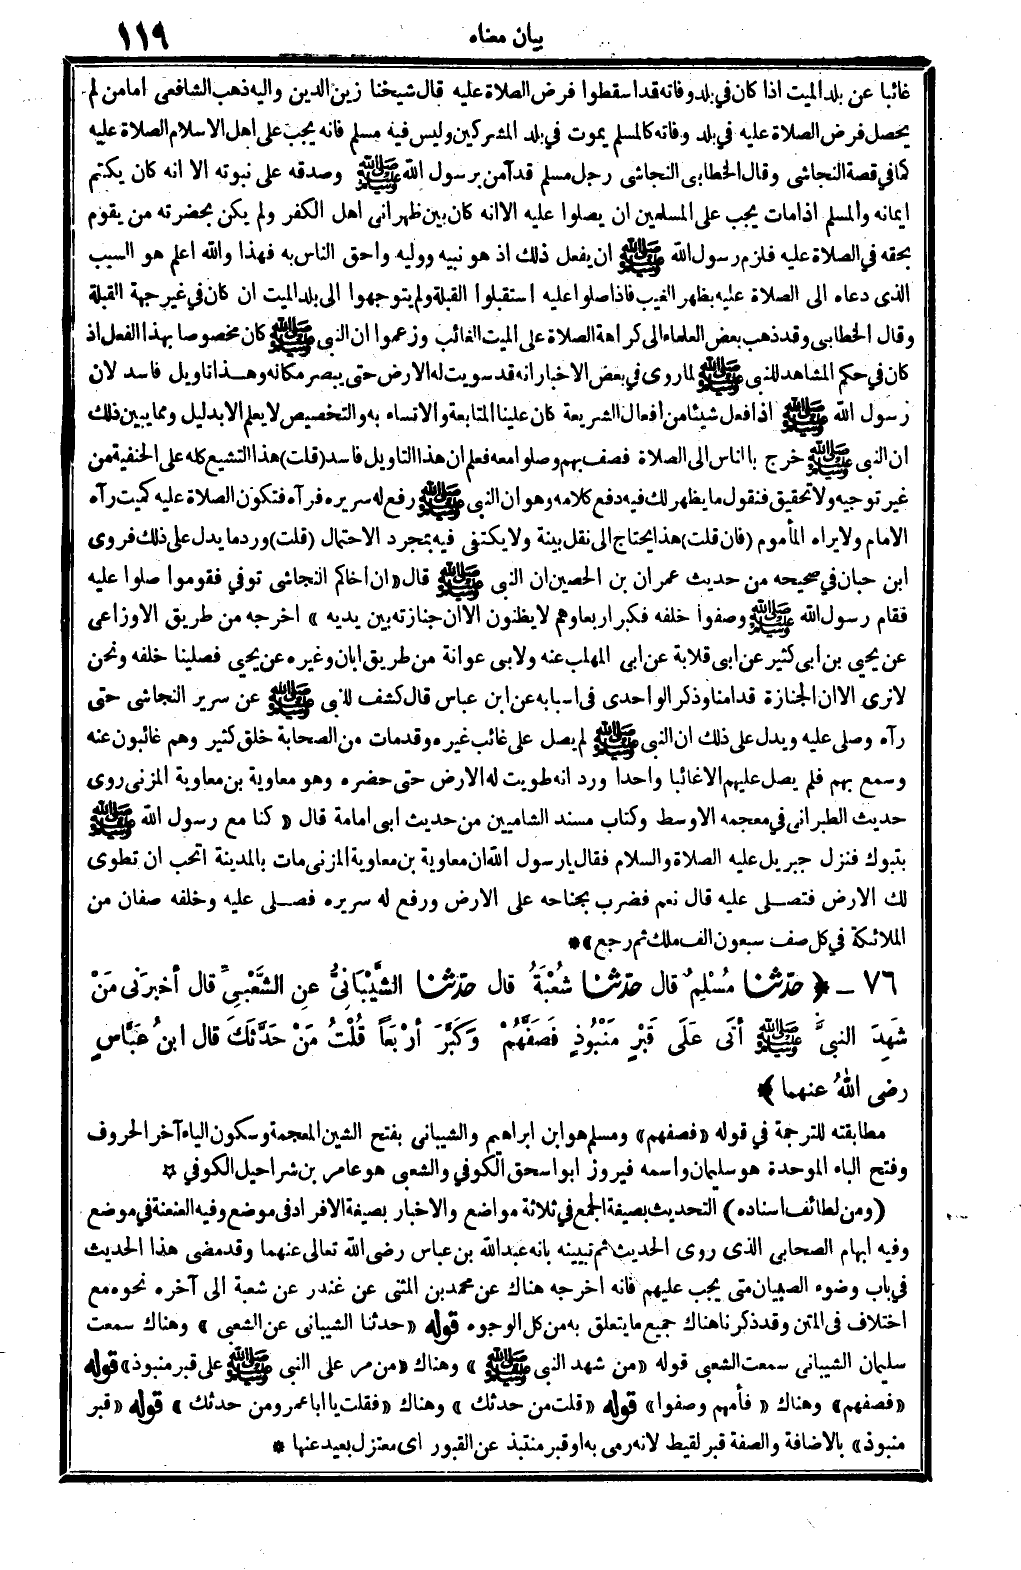 بيان معناه ١١٩
غائبا عن بلد الميت اذا كان في بلد وفاته قد اسقطوا فرض الصلاة عليه قال شيخنا زين الدين واليه ذهب الشافعى اما من لم
يحصل فرض الصلاة عليه في بلد وفاته كالمسلم يموت في بلد المشركين وليس فيه مسلم فانه يجب على اهل الاسلام الصلاة عليه
كما في قصة النجاشى وقال الخطابى النجاشى رجل مسلم قد آمن برسول الله ﷺ وصدقه على نبوته الا انه كان يكتم
ايمانه والمسلم اذا مات يجب على المسلمين ان يصلوا عليه الا انه كان بين ظهرانى اهل الكفر ولم يكن بحضرته من يقوم
بحقه في الصلاة عليه فلزم رسول الله ﷺ ان يفعل ذلك اذ هو نبيه ووليه واحق الناس به فهذا والله اعلم هو السبب
الذى دعاه الى الصلاة عليه بظهر الغيب فاذا صلوا عليه استقبلوا القبلة ولم يتوجهوا الى بلد الميت ان كان في غير جهة القبلة
وقال الخطابى وقد ذهب بعض العلماء الى كراهة الصلاة على الميت الغائب وزعموا ان النبى ﷺ كان مخصوصا بهذا الفعل اذ
كان في حكم المشاهد للنبى ﷺ لما روى في بعض الاخبار انه قد سويت له الارض حتى يبصر مكانه وهــذا تاويل فاسد لان
رسول الله ﷺ اذا فعل شيئا من افعال الشريعة كان علينا المتابعة والاتساء به والتخصيص لا يعلم الا بدليل ومما يبين ذلك
ان النبى ﷺ خرج بالناس الى الصلاة فصف بهم وصلوا معه فعلم ان هذا التاويل فاسد (قلت) هذا التشنيع كله على الحنفية من
غير توجيه ولا تحقيق فنقول ما يظهر لك فيه دفع كلامه وهو ان النبى ﷺ رفع له سريره فرآه فتكون الصلاة عليه كميت رآه
الامام ولا يراه المأموم (فان قلت) هذا يحتاج الى نقل بينة ولا يكتفى فيه بمجرد الاحتمال (قلت) ورد ما يدل على ذلك فروى
ابن حبان في صحيحه من حديث عمران بن الحصين ان النبى ﷺ قال «ان اخاكم النجاشى توفي فقوموا صلوا عليه
فقام رسول الله ﷺ وصفوا خلفه فكبر اربعا وهم لا يظنون الا ان جنازته بين يديه » اخرجه من طريق الاوزاعى
عن يحيى بن أبى كثير عن ابى قلابة عن ابى المهلب عنه ولابى عوانة من طريق ابان وغيره عن يحيى فصلينا خلفه ونحن
لانرى الا ان الجنازة قدامنا وذكر الواحدى فى اسبابه عن ابن عباس قال كشف للنبى ﷺ عن سرير النجاشى حتى
رآه وصلى عليه ويدل على ذلك ان النبى ﷺ لم يصل على غائب غيره وقد مات من الصحابة خلق كثير وهم غائبون عنه
وسمع بهم فلم يصل عليهم الا غائبا واحدا ورد انه طويت له الارض حتى حضره وهو معاوية بن معاوية المزنى روى
حديث الطبرانى في معجمه الاوسط وكتاب مسند الشاميين من حديث ابى امامة قال « كنا مع رسول الله ﷺ
بتبوك فنزل جبريل عليه الصلاة والسلام فقال يارسول الله ان معاوية بن معاوية المزنى مات بالمدينة اتحب ان تطوى
لك الارض فتصــلى عليه قال نعم فضرب بجناحه على الارض ورفع له سريره فصــلى عليه وخلفه صفان من
الملائكة في كل صف سبعون الف ملك ثم رجع »*
٧٦ ـ ﴿ حدّثنا مُسْلِمٌ قال حدّثنا شُعْبَةُ قال حدّثنا الشَّيْبَانِيُّ عنِ الشَّعْبِيِّ قال أخبرَنى مَنْ
شَهِدَ النبىَّ ﷺ أتَى عَلَى قَبْرٍ مَنْبُوذٍ فَصَفَّهُمْ وَكَبَّرَ أرْبَعاً قُلْتُ مَنْ حَدَّثَكَ قال ابنُ عَبَّاسٍ
رضى اللهُ عنهما ﴾
مطابقته للترجمة في قوله «فصفهم» ومسلم هو ابن ابراهيم والشيبانى بفتح الشين المعجمة وسكون الياء آخر الحروف
وفتح الباء الموحدة هو سليمان واسمه فيروز ابو اسحق الكوفي والشعبى هو عامر بن شراحيل الكوفي ☆
(ومن لطائف اسناده) التحديث بصيغة الجمع في ثلاثة مواضع والاخبار بصيغة الافراد فى موضع وفيه العنعنة في موضع
وفيه ابهام الصحابي الذى روى الحديث ثم تبيينه بانه عبد الله بن عباس رضى الله تعالى عنهما وقد مضى هذا الحديث
في باب وضوء الصبيان متى يجب عليهم فانه اخرجه هناك عن محمد بن المثنى عن غندر عن شعبة الى آخره نحوه مع
اختلاف فى المتن وقد ذكرنا هناك جميع ما يتعلق به من كل الوجوه قوله «حدثنا الشيبانى عن الشعبى » وهناك سمعت
سليمان الشيبانى سمعت الشعبى قوله «من شهد النبى ﷺ » وهناك «من مر على النبى ﷺ على قبر منبوذ» قوله
«فصفهم» وهناك « فأمهم وصفوا» قوله «قلت من حدثك » وهناك «فقلت يا ابا عمرو من حدثك » قوله «قبر
منبوذ» بالاضافة والصفة قبر لقيط لانه رمى به او قبر منتبذ عن القبور اى معتزل بعيد عنها *